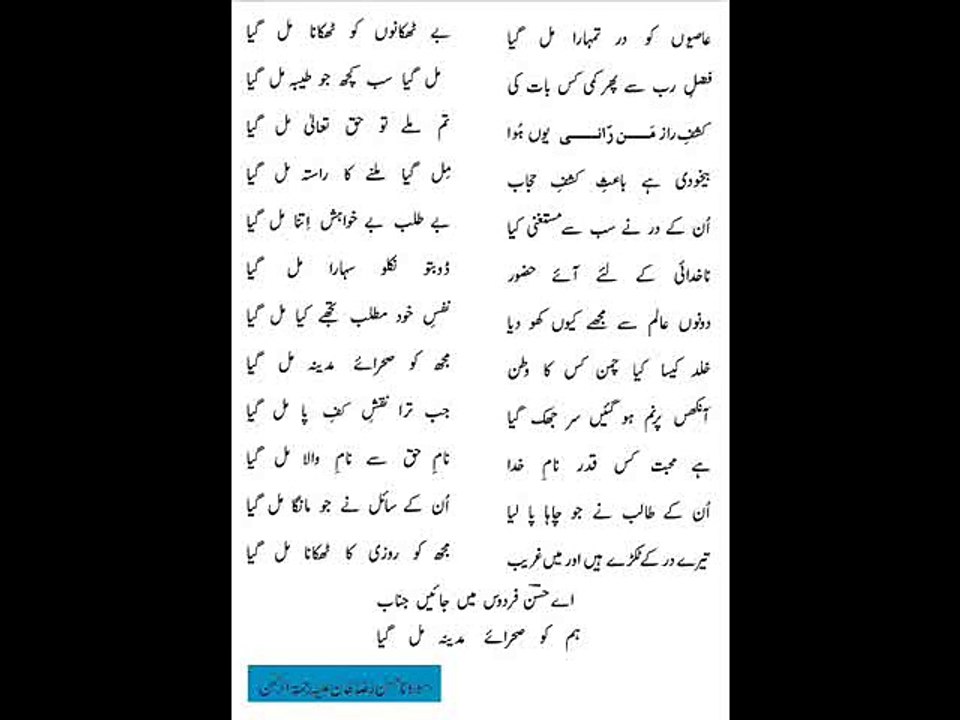 عاصیوں کو در تمہارا مل گیا بے ٹھکانوں کو ٹھکانا مل گیا
فضلِ رب سے پھر کمی کس بات کی مل گیا سب کچھ جو طیبہ مل گیا
کشفِ راز مَن رَّانی یوں ہُوا تم ملے تو حق تعالیٰ مل گیا
بیخودی ہے باعثِ کشفِ حجاب مِل گیا ملنے کا راستہ مل گیا
اُن کے در نے سب سے مستغنی کیا بے طلب بے خواہش اِتنا مل گیا
ناخدائی کے لئے آئے حضور ڈوبتو نکلو سہارا مل گیا
دونوں عالم سے مجھے کیوں کھو دیا نفسِ خود مطلب تجھے کیا مل گیا
خلد کیسا کیا چمن کس کا وطن مجھ کو صحرائے مدینہ مل گیا
آنکھیں پرنم ہو گئیں سر جھک گیا جب ترا نقشِ کفِ پا مل گیا
ہے محبت کس قدر نامِ خدا نامِ حق سے نامِ والا مل گیا
اُن کے طالب نے جو چاہا پا لیا اُن کے سائل نے جو مانگا مل گیا
تیرے در کے ٹکڑے ہیں اور میں غریب مجھ کو روزی کا ٹھکانا مل گیا
اے حسنؔ فردوس میں جائیں جناب
ہم کو صحرائے مدینہ مل گیا
مولانا حسن رضا خان علیہ رحمۃ الرحمٰن